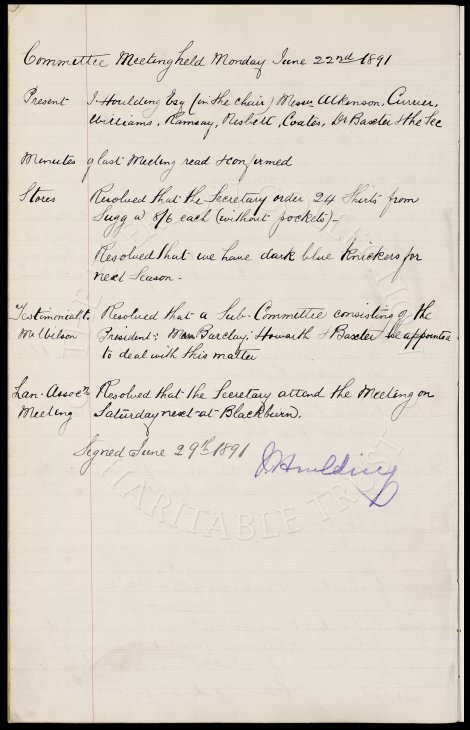 Committee Meeting held Monday June 22nd 1891
Present J. Houlding Esq (in the chair) Messrs Atkinson, Currier,
Williams, Ramsay, Nisbett, Coates, Dr Baxter & the Sec
Minutes of last Meeting read & confirmed
Stores Resolved that the Secretary order 24 Shirts from
Sugg @ 8/6 each (without pockets)-
Resolved that we have dark blue Knickers for
next Season.
Testimonial to Resolved that a Sub-Committee consisting of the
Mr Wilson President; Barclay, Howarth & Baxter be appointed
to deal with this matter
Lan. Assocn Resolved that the Secretary attend the Meeting on
Meeting Saturday next at Blackburn.
Signed June 29th 1891
J. Houlding
CHARITABLE TRUST